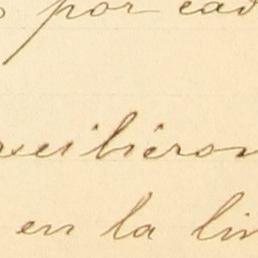 por cad
recibieron
en la lin